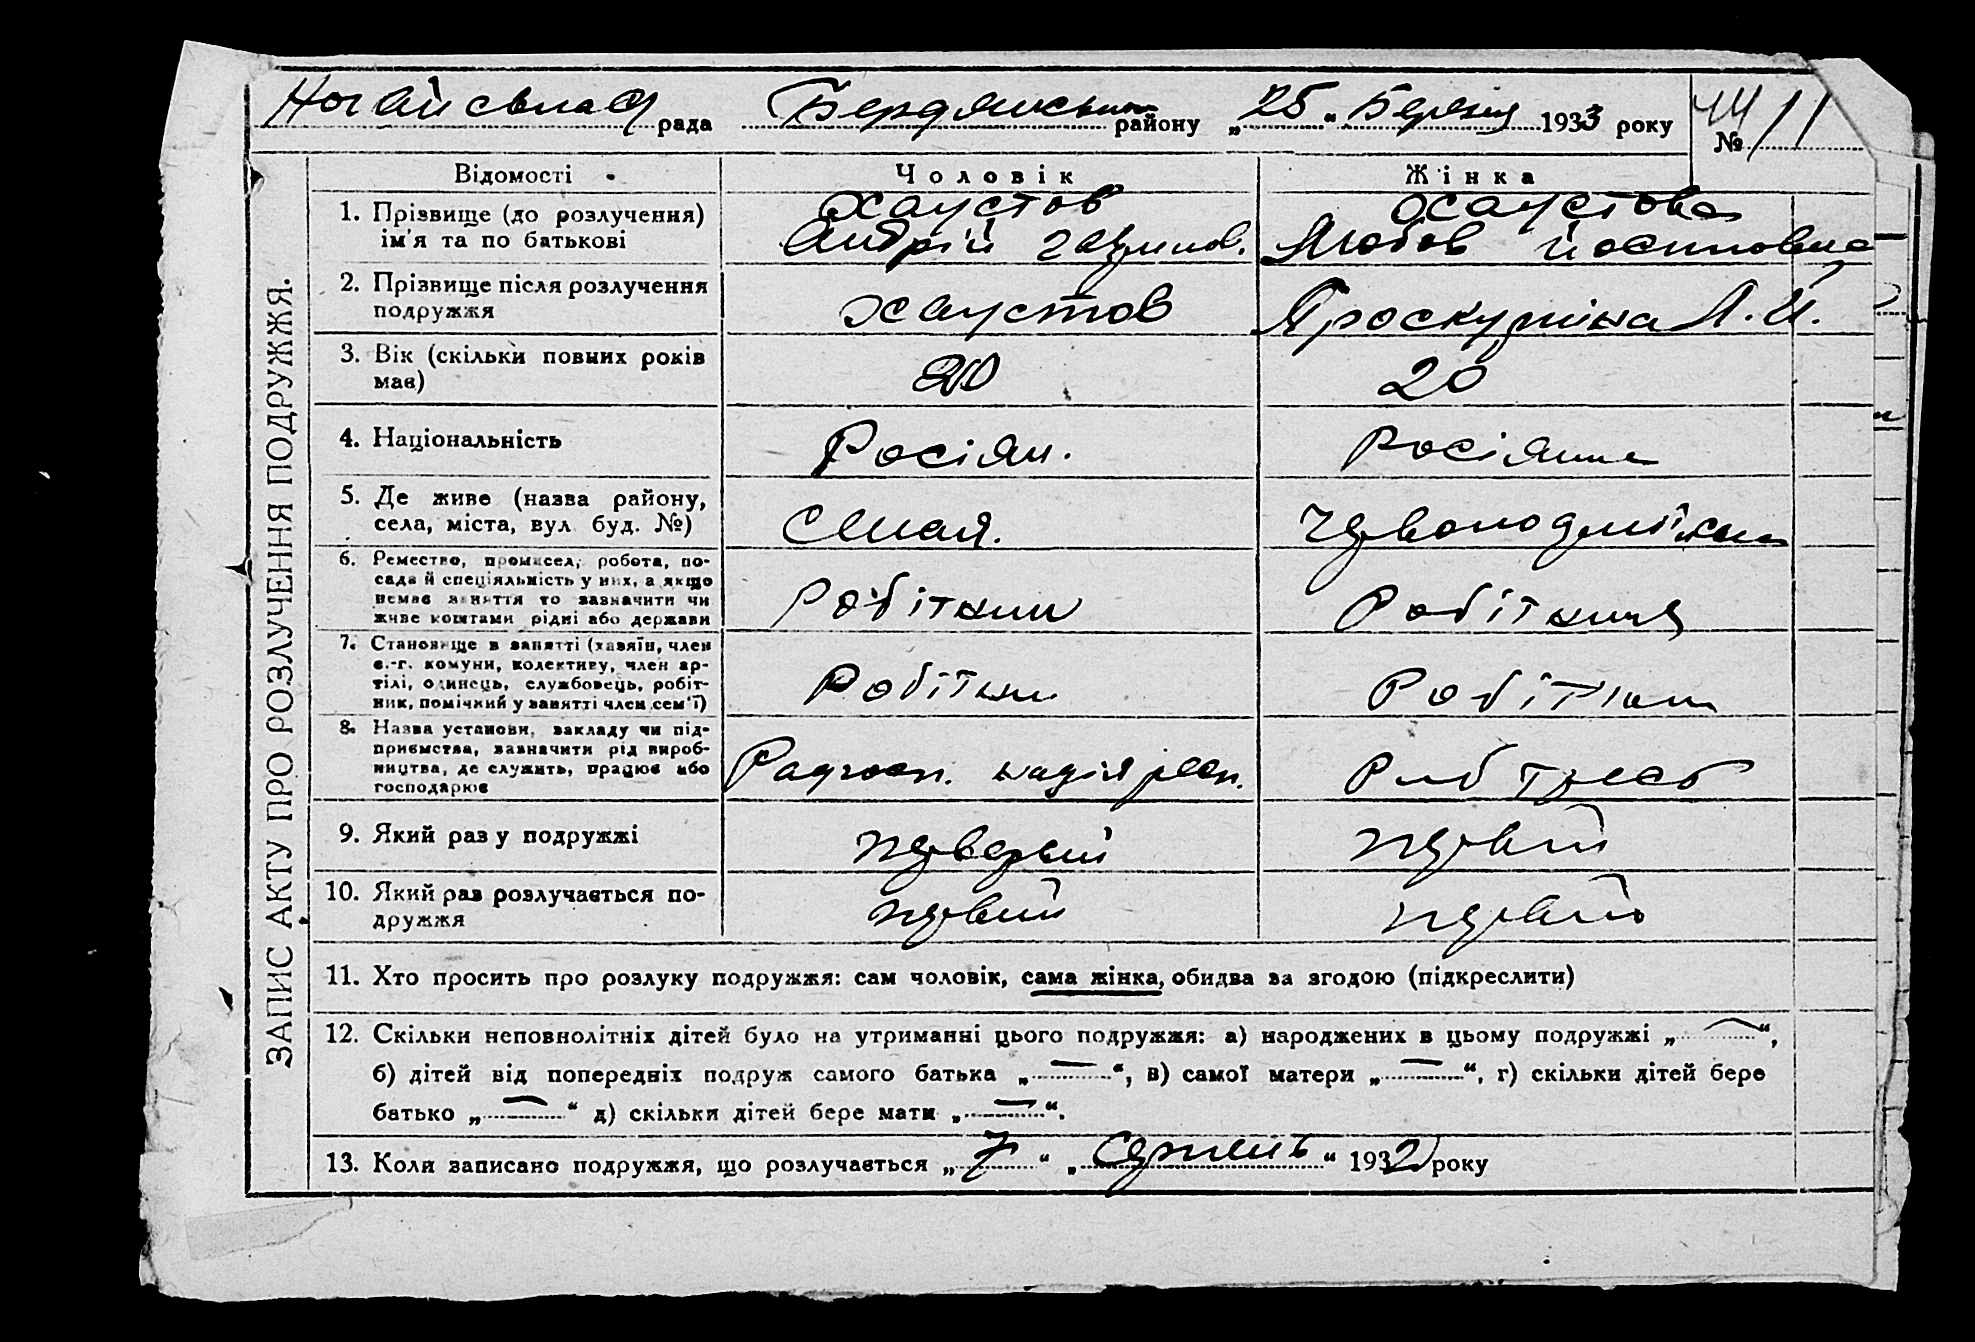 Ногайська рада Бердянського району „25“ Березня 1933 року № 44/11
ЗАПИС АКТУ ПРО РОЗЛУЧЕННЯ ПОДРУЖЖЯ.
Відомості Чоловік Жінка
1. Прізвище (до розлучення) Хаустов Хаустова
ім'я та по батькові Андрій Любов Йосиповна
2. Прізвище після розлучення
подружжя Хаустов Проскуріна Л. Й.
3. Вік (скільки повних років
має) 20 20
4. Національність Росіян. Росіянка
5. Де живе (назва району,
села, міста, вул. буд. №)
6. Ремество, промисел, робота, по-
сада й спеціяльність у них, а якщо
немає заняття то зазначити чи
живе коштами рідні або держави Робітник Робітниця
7. Становище в занятті (хазяїн, член
с.-г. комуни, колективу, член ар-
тілі, одинець, службовець, робіт-
ник, помічний у занятті член сем'ї) Робітник Робітн
8. Назва установи, закладу чи під-
приємства, зазначити рід вироб-
ництва, де служить, працює або
господарює Радгосп. Риб трест
9. Який раз у подружжі первий
10. Який раз розлучається по-
дружжя первий первий
11. Хто просить про розлуку подружжя: сам чоловік, сама жінка, обидва за згодою (підкреслити)
12. Скільки неповнолітніх дітей було на утриманні цього подружжя: а) народжених в цьому подружжі „—“,
б) дітей від попередніх подруж самого батька „—“, в) самої матери „—“, г) скільки дітей бере
батько „—“ д) скільки дітей бере мати „—“.
13. Коли записано подружжя, що розлучається „7“ „Серпень“ 1932 року